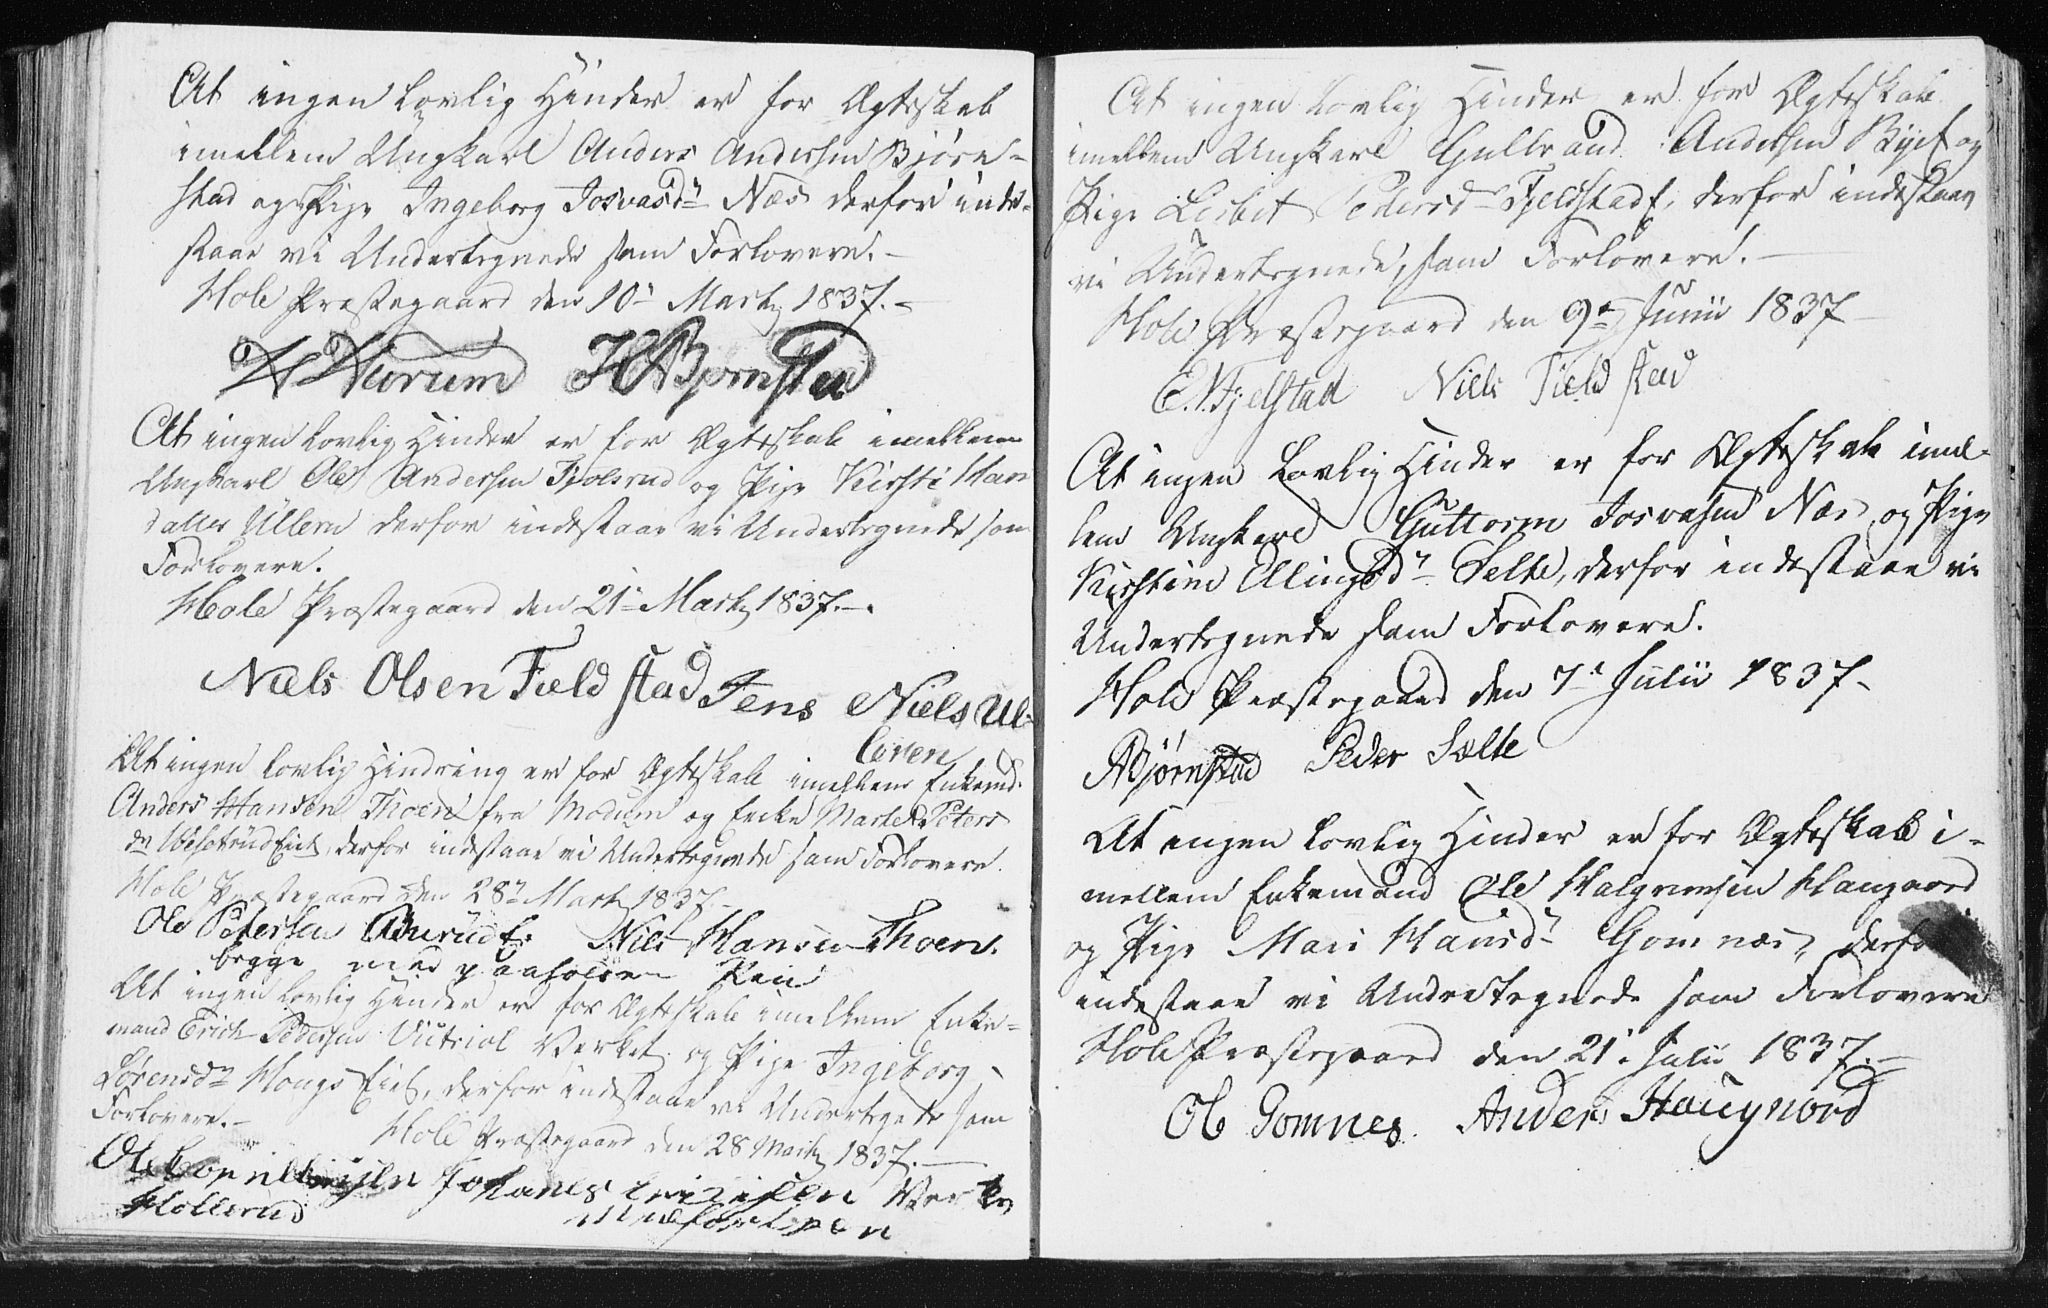 At ingen Lovlig Hinder er for Ægteskab
imellem Ungkarl Anders Andersen Bjørn-
stad og Pige Ingeborg Josvasdr Næs derfor inde-
staae vi Undertegnede som Forlovere.-
Hole Præstegaard den 10de Marts 1837.-
Bjørnstad
At ingen Lovlig Hinder er for Ægteskab imellem
Ungkarl Ole Andersen Fjolsrud og Pige Kirsti Han
datter Ullern derfor indestaae vi Undertegnede som
Forlovere.
Hole Præstegaard den 21de Marts 1837.-.
Niels Olsen Field stad Jens Niels Ul-
leren
At ingen lovlig Hindring er for Ægteskab imellem Enkemd.
Anders Hansen Thoen fra Modum og Enke Marte Peters
dr Eiet, derfor indestaae vi Undertegnede som Forlovere.
Hole Præstegaard den 28de Marts 1837.-
Ole Petersen Niels Hansen Thoen.
begge med paaholden Pen
At ingen Lovlig Hinder er for Ægteskab imellem Enke-
mand Erich Pedersen Victriol Verket og Pige Ingeborg
Lorensdr Hougs Eiet, derfor indestaae vi Undertegnede som
Forlovere.- Hole Præstegaard den 28 Marts 1837.-
Ole Johanes
Hollerud
At ingen Lovlig Hinder er for Ægteskab
imellem Ungkarl Gulbrand Andersen Bye og
Pige Lisbet Pedersd Fjeldstad E, derfor indestaae
vi Undertegnede, som Forlovere.-
Hole Præstegaard den 9de Junii 1837-
E.N.Fjelstad Niels Field stad
At ingen Lovlig Hinder er for Ægteskab imel-
lem Ungkarl Guttorm Josvasen Næs og Pige
Kirstine Ellingsdr Selte, derfor indestaae vi
Undertegnede som Forlovere.
Hole Præstegaard den 7de Julii 1837-
Bjørnstad Peder Sælte
At ingen lovlig Hinder er for Ægteskab i-
mellem Enkemand Ole Halgrimsen Haugaard
og Pige Mari Hansdr Gomnæs, derfor
indestaae vi Undretegnede som Forlovere
Hole Præstegaard den 21de Julii 1837.-
Ole Gomnes. Anders